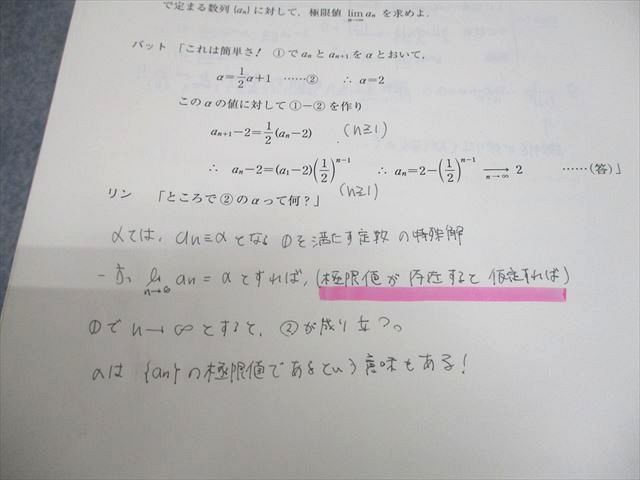 で定まる数列{aₙ}に対して，極限値 lim aₙ を求めよ．
n→∞
バット 「これは簡単さ！ ①で aₙ と aₙ₊₁ を α とおいて，
α=1/2α+1 ……② ∴ α=2
この α の値に対して①−②を作り
aₙ₊₁−2=1/2(aₙ−2) (n≧1)
∴ aₙ−2=(a₁−2)(1/2)ⁿ⁻¹ ∴ aₙ=2−(1/2)ⁿ⁻¹ ⟶ 2 ……(答)」
n→∞
リン 「ところで②の α って何？」 (n≧1)
αとは、aₙ≡αとなる ①を満たす定数の特殊解
一方、lim aₙ = α とすれば、(極限値が存在すると仮定すれば)
n→∞
①で n→∞ とすると、②が成り立つ。
αは {aₙ} の極限値であるという意味もある!